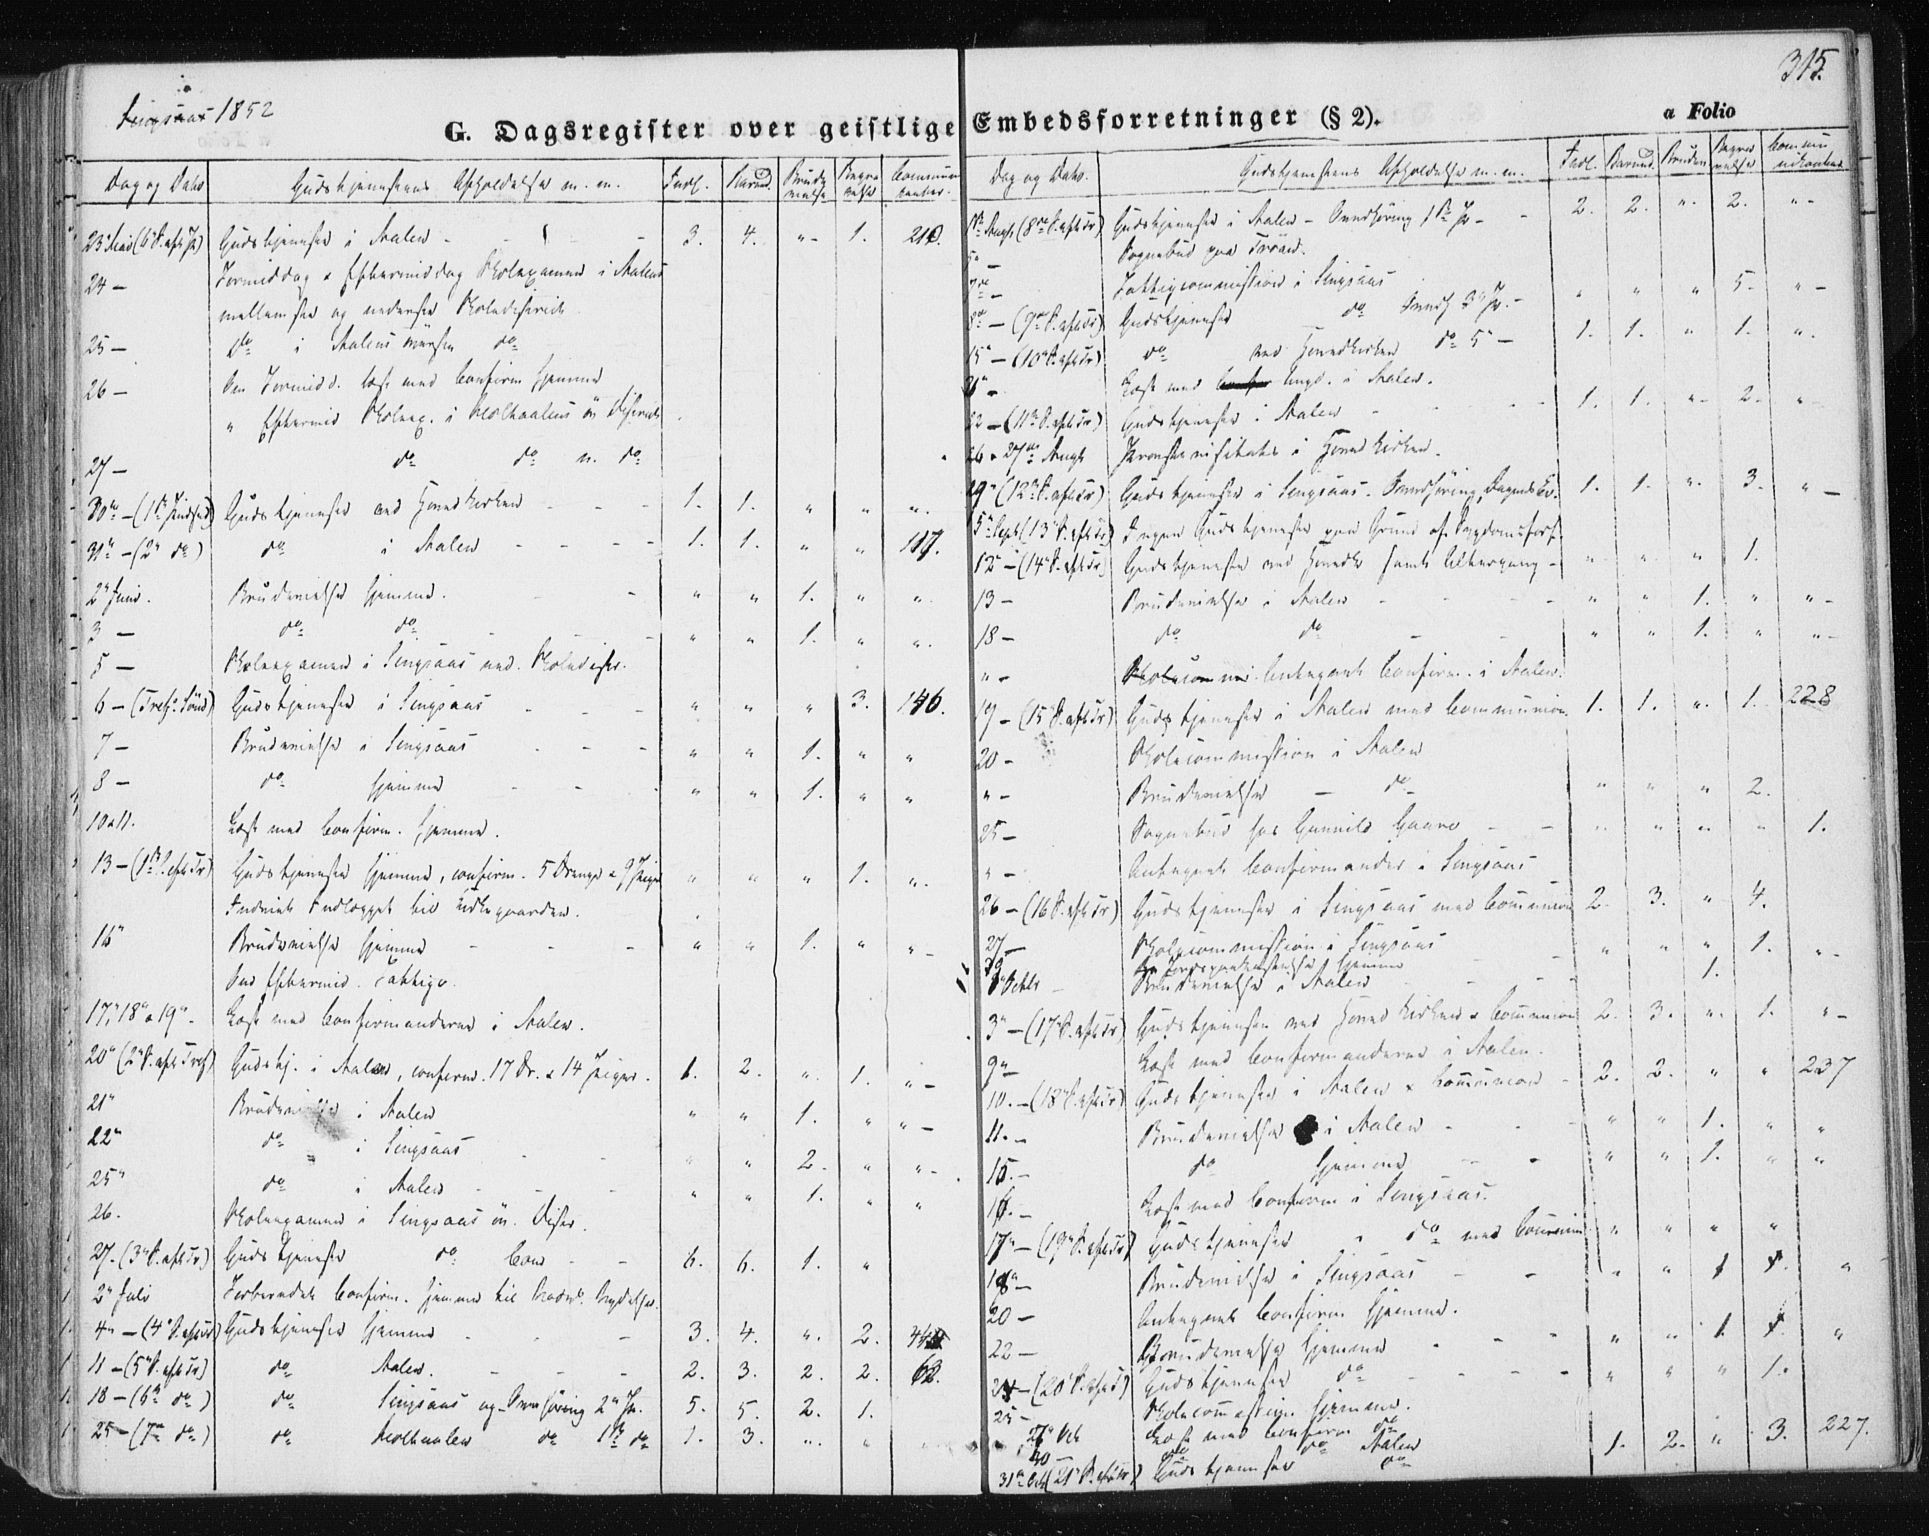 Singsaas 1852
315.
G. Dagsregister over geistlige Embedsforretninger (§ 2).
a Folio
Dag og Dato Gudstjenestens Afholdelse m. m. Indl. Barned. Brudevielse Begravelse Communicanter.
23de Mai (6 S. eft. P) Gudstjeneste i Aalen - - 3. 4. "- 1. 210.
24 - Formiddag & Eftermiddag Skolexamen i Aalens
mellemste og nederste Skoledistrict
25 - do i Aalens øverste do
26 - Om Formidd. læst med Confirm hjemme
" Eftermid Skolex. i Holtaalens ön District
27 - do do n. do
30te - (1ste Pindsed) Gudstjeneste ved Hovedkirken - - - 1. 1. " "
31te - (2den do) do i Aalen - - - - 1. 1. " " 117.
2den Juni. Brudevielse hjemme. - - " " 1. " "
3 - do do - - " " 1. " "
5 - Skolexamen i Singsaas ned. Skoledistr.
6 - (Tref. Sönd) Gudstjeneste i Singsaas - - - " " " 3. 146.
7 - Brudevielse i Singsaas - - - " " 1. " "
8 - do hjemme - - - " " 1. " "
10 & 11. Læst med Confirm. hjemme.
13 - (1ste S. eft Tr) Gudstjeneste hjemme, confirm. 5 Drenge & 9 Piger " " " 1. "
16de Brudevielse hjemme - - - " " 1. " "-
Om Eftermid. Fattigc.
17de, 18de & 19de - Læst med Confirmanderne i Aalen.
20de (2den S. eft Tref) Gudstj. i Aalen, confirm. 17 Dr. & 14 Piger. 1. 2. " 1. "-
21de Brudevielse i Aalen " " 1. " "-
22de do i Singsaas - - " " 2. " "-
25de do i Aalen - - - " " 1. " "
26. Skolexamen i Singsaas ön. Distr.
27. (3die S. eft Tr.) Gudstjeneste do Com - - 6. 6. 1. "
2den Juli Forberedet Confirm. hjemme til Nadv. Nydelse.
4de - (4de S. eft Tr) Gudstjeneste hjemme - - - 3. 4. " 2.
11 - (5te S. eft Tr) do Aalen. - - - 2. 3. 2. 2. 62.
18 - (6te do) do Singsaas og Omföring 2den P. 5. 5. 2. 1.
25 - (7de do) do Holtaalen do 1ste do 1. 3. " "
Dag og Dato. Gudstjenestens Afholdelse m. m. Indl. Barned. Brudev. Begravelse Communikanter
1ste Augt (8de S. eft Tr) Gudstjeneste i Aalen - Omföring 1ste P. - - 2. 2. " 2. "-
5te - Sognebud paa Tröan.
7de - Fattigcommission i Singsaas
8de - (9de S. eft Tr) Gudstjeneste do Omf 3die P. - " " " 5. "-
15de - (10de S. eft Tr) do ved Hovedkirken do 5te - 1. 1. " 1. "
21de - Læst med Ungd. i Aalen.
22 - (11te S. eft Tr) Gudstjeneste i Aalen - - - 1. 1. " 2. "
26 & 27de Augt Provstevisitats i Hovedkirken.
29de (12te S. eft Tr) Gudstjeneste i Singsaas. Omföring, Dagens Ev. 1. 1. " 3. "-
5te Sept (13de S. eft Tr) Ingen Gudstjeneste paa Grund af Sygdomsforf.
12te - (14de S. eft Tr) Gudstjeneste ved Hovedk samt Altergang - " " " 1.
13 - Brudevielse i Aalen - - - - " " 1. " "-
18 - do do - - " " 1. " "-
" - Antegnet Confirm. i Aalen.
19 - (15de S. eft Tr) Gudstjeneste i Aalen med Communion 1. 1. " 1. 228
20 - Skolecommission i Aalen
" - Brudevielse - do " " " 2.
25 - Sognebud hos Gunnild Gaare - - " " " " 1.
" - Antegnet Confirmander i Singsaas
26 - (16 S. eft Tr) Gudstjeneste i Singsaas med Communion 2. 3. " 4.
27 - Skolecommission i Singsaas " " " 1. "-
Octbr - Brudevielse i Aalen - - - 1.
3die - (17de S. eft Tr) Gudstjeneste ved Hovedkirken & Communion 2. 3. " 1. "-
9de Læst med Confirmanderne i Aalen.
10. - (18de S. eft Tr) Gudstjeneste i Aalen & Communion - 2. 2. " " 237
11. - Brudevielse i Aalen - - - " " 1. " "
15. - do hjemme - - " " 1. " "
16. - Læst med Confirm i Singsaas.
17de - (19de S. eft Tr) Gudstjeneste i do med Communion " " " "
18de - Brudevielse i Singsaas - - " " 1 "
20 - Antegnet Confirm hjemme.
22 - Brudevielse hjemme - - - " " 1. "
24 - (20 S. eft Tr) Gudstjeneste do - - - " " " 1.
25 - Skolecommission hjemme.
27de Oct Læst med Confirm do
30 - do do Aalen
31te Oct (21de S. eft Tr) Gudstjeneste do 1. 2. " 3. 227.